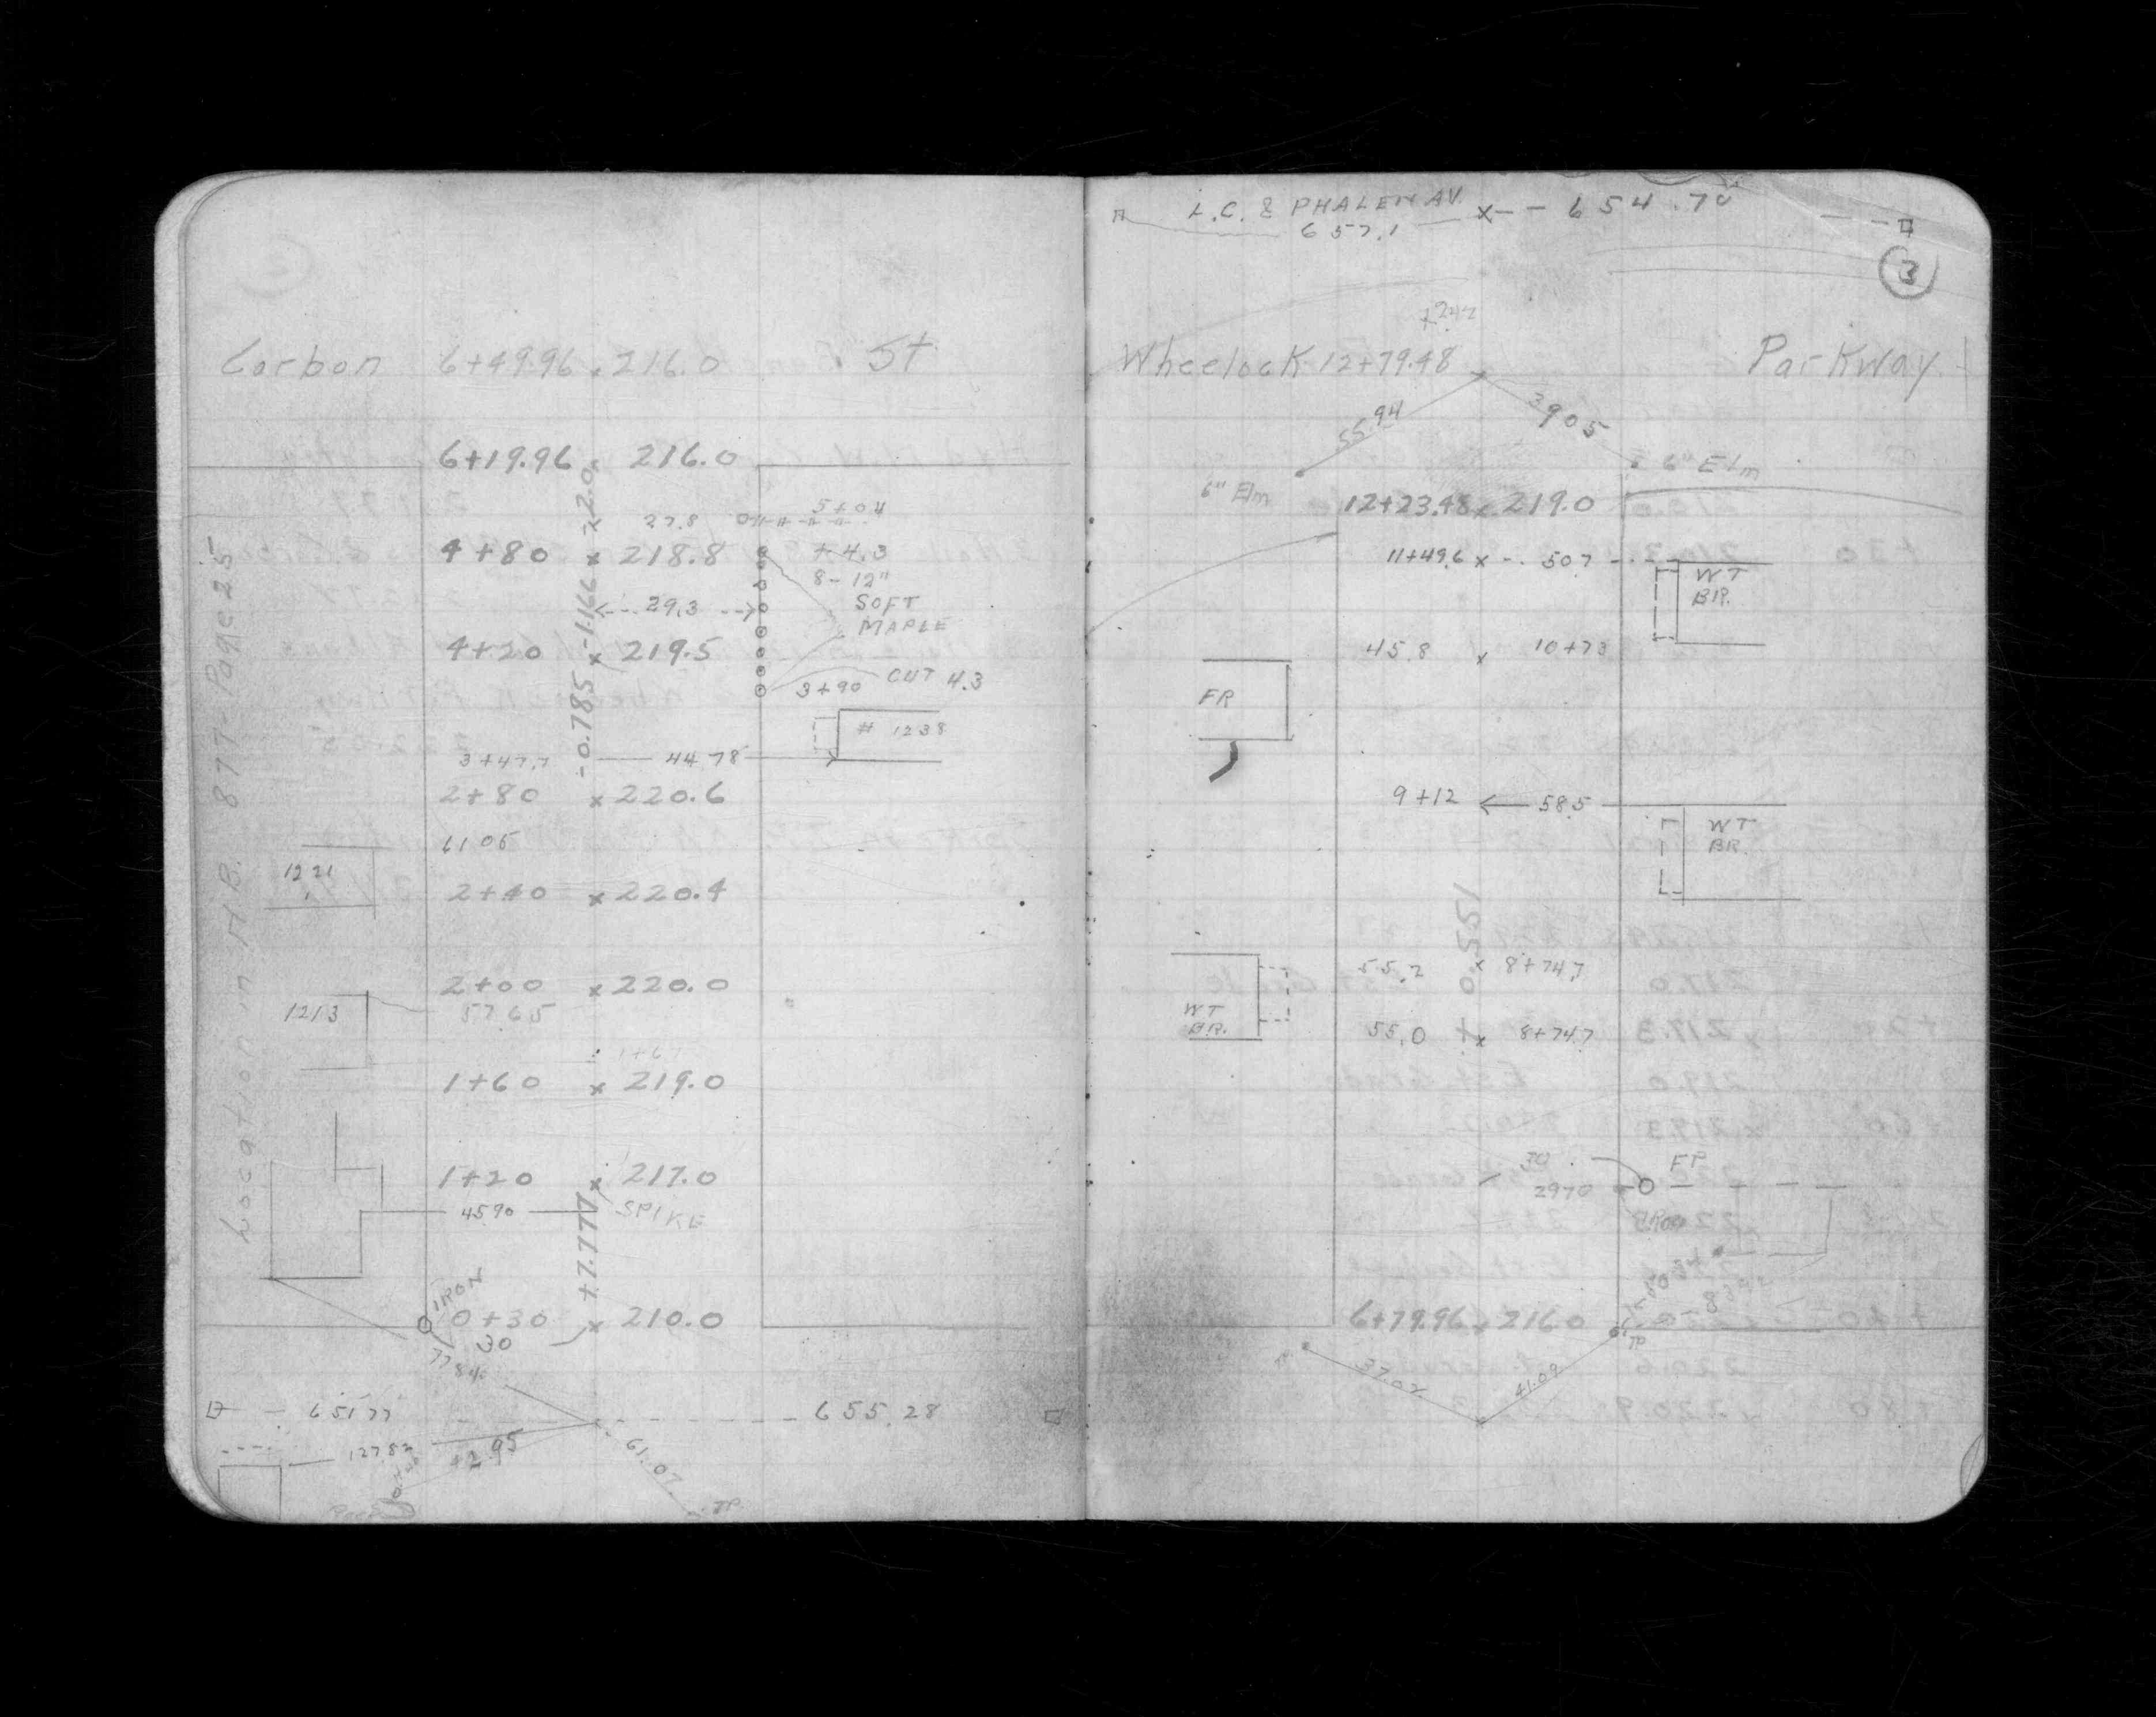 Corbon 6+49.96 x 216.0 St
6+19.96 x 216.0
-2.0
27.8
5+04
4+80 x 218.8
+4.3
8-12"
SOFT
MAPLE
29.3
-1.166
4+20 x 219.5
3+90 CUT 4.3
-0.785
# 1238
3+47.7 44.78
2+80 x 220.6
61 05
1221
2+40 x 220.4
2+00 x 220.0
1213
57.65
1+67
1+60 x 219.0
1+20 x 217.0
45.90 SPIKE
+7.777
IRON
0+30 x 210.0
30
77
651.77 655.28
127.82
42.95
61.07
TP
Location in M.B. 877-Page 25
L.C. & PHALEN AV. x-- 654.70
657.1
3
+242
Wheelock 12+79.48 Parkway
55.94
39.05
6" Elm
6" Elm
12+23.48 x 219.0
11+49.6 x 50.7
WT
BR.
45.8 x 10+73
FR
9+12 58.5
WT
BR.
+0.551
55.2 x 8+74.7
WT
BR.
55.0 x 8+74.7
30
FP
29.70
6+79.96 x 216.0
TP
37.02
41.09